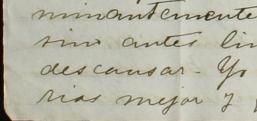 minantemente
sino antes lin
descansar - Yo
rias mejor y